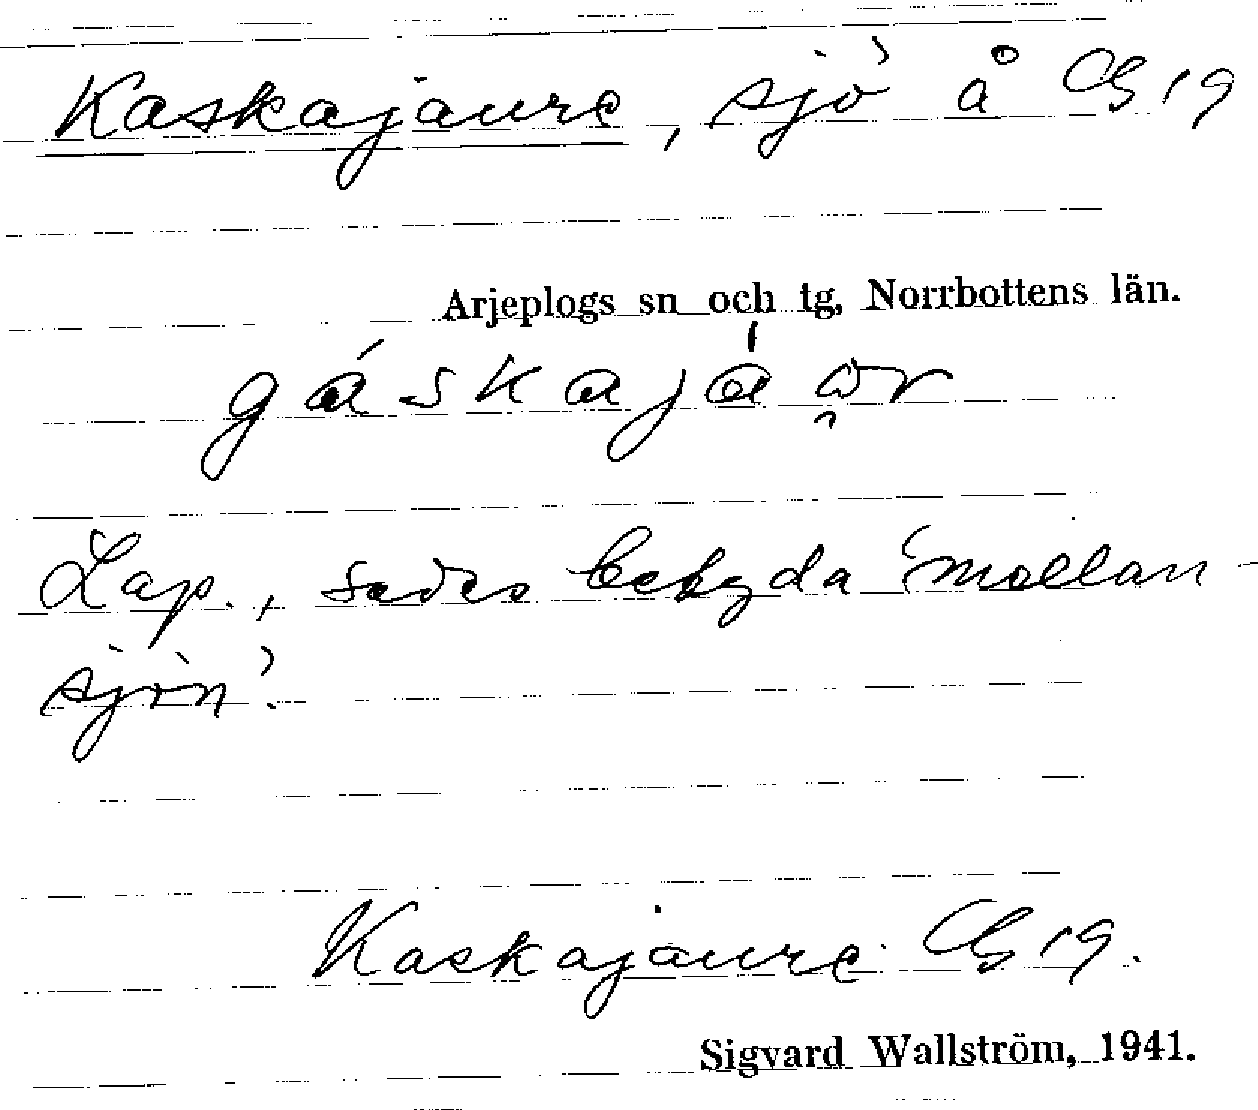 Kaskajaure, sjö å GB 19
Arjeplogs sn och tg, Norrbottens län.
gáskajáu̯r
Lap., sades betyda 'mellan-
sjön'.
Kaskajaure GB 19.
Sigvard Wallström, 1941.